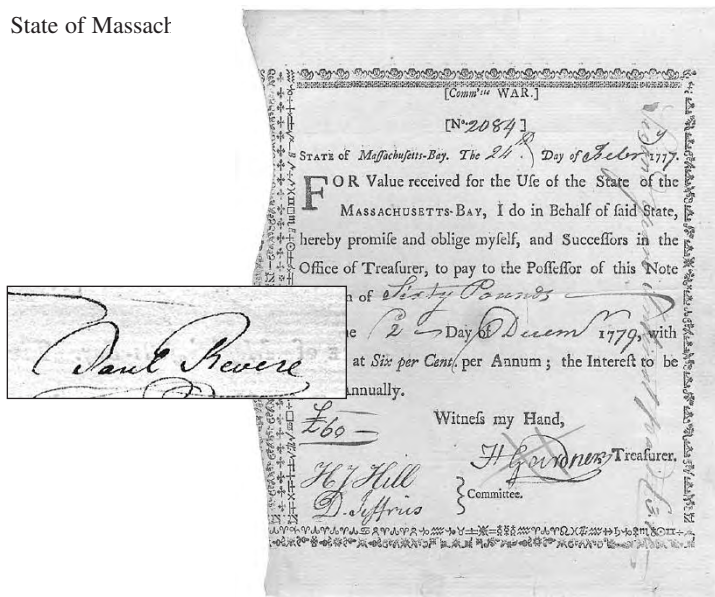 State of Massach
[Comm'ttee WAR.]
[No. 2084]
STATE of Maſſachuſetts-Bay. The 24th Day of Febry 1777.
FOR Value received for the Uſe of the State of the
MASSACHUSETTS-BAY, I do in Behalf of ſaid State,
hereby promiſe and oblige myſelf, and Succeſſors in the
Office of Treaſurer, to pay to the Poſſeſſor of this Note
of Sixty Pounds
2 Day of Decemr 1779, with
at Six per Cent. per Annum; the Intereſt to be
Annually.
Paul Revere
£60
Witneſs my Hand,
H Gardner Treaſurer.
H J Hill
D. Jeffries
Committee.